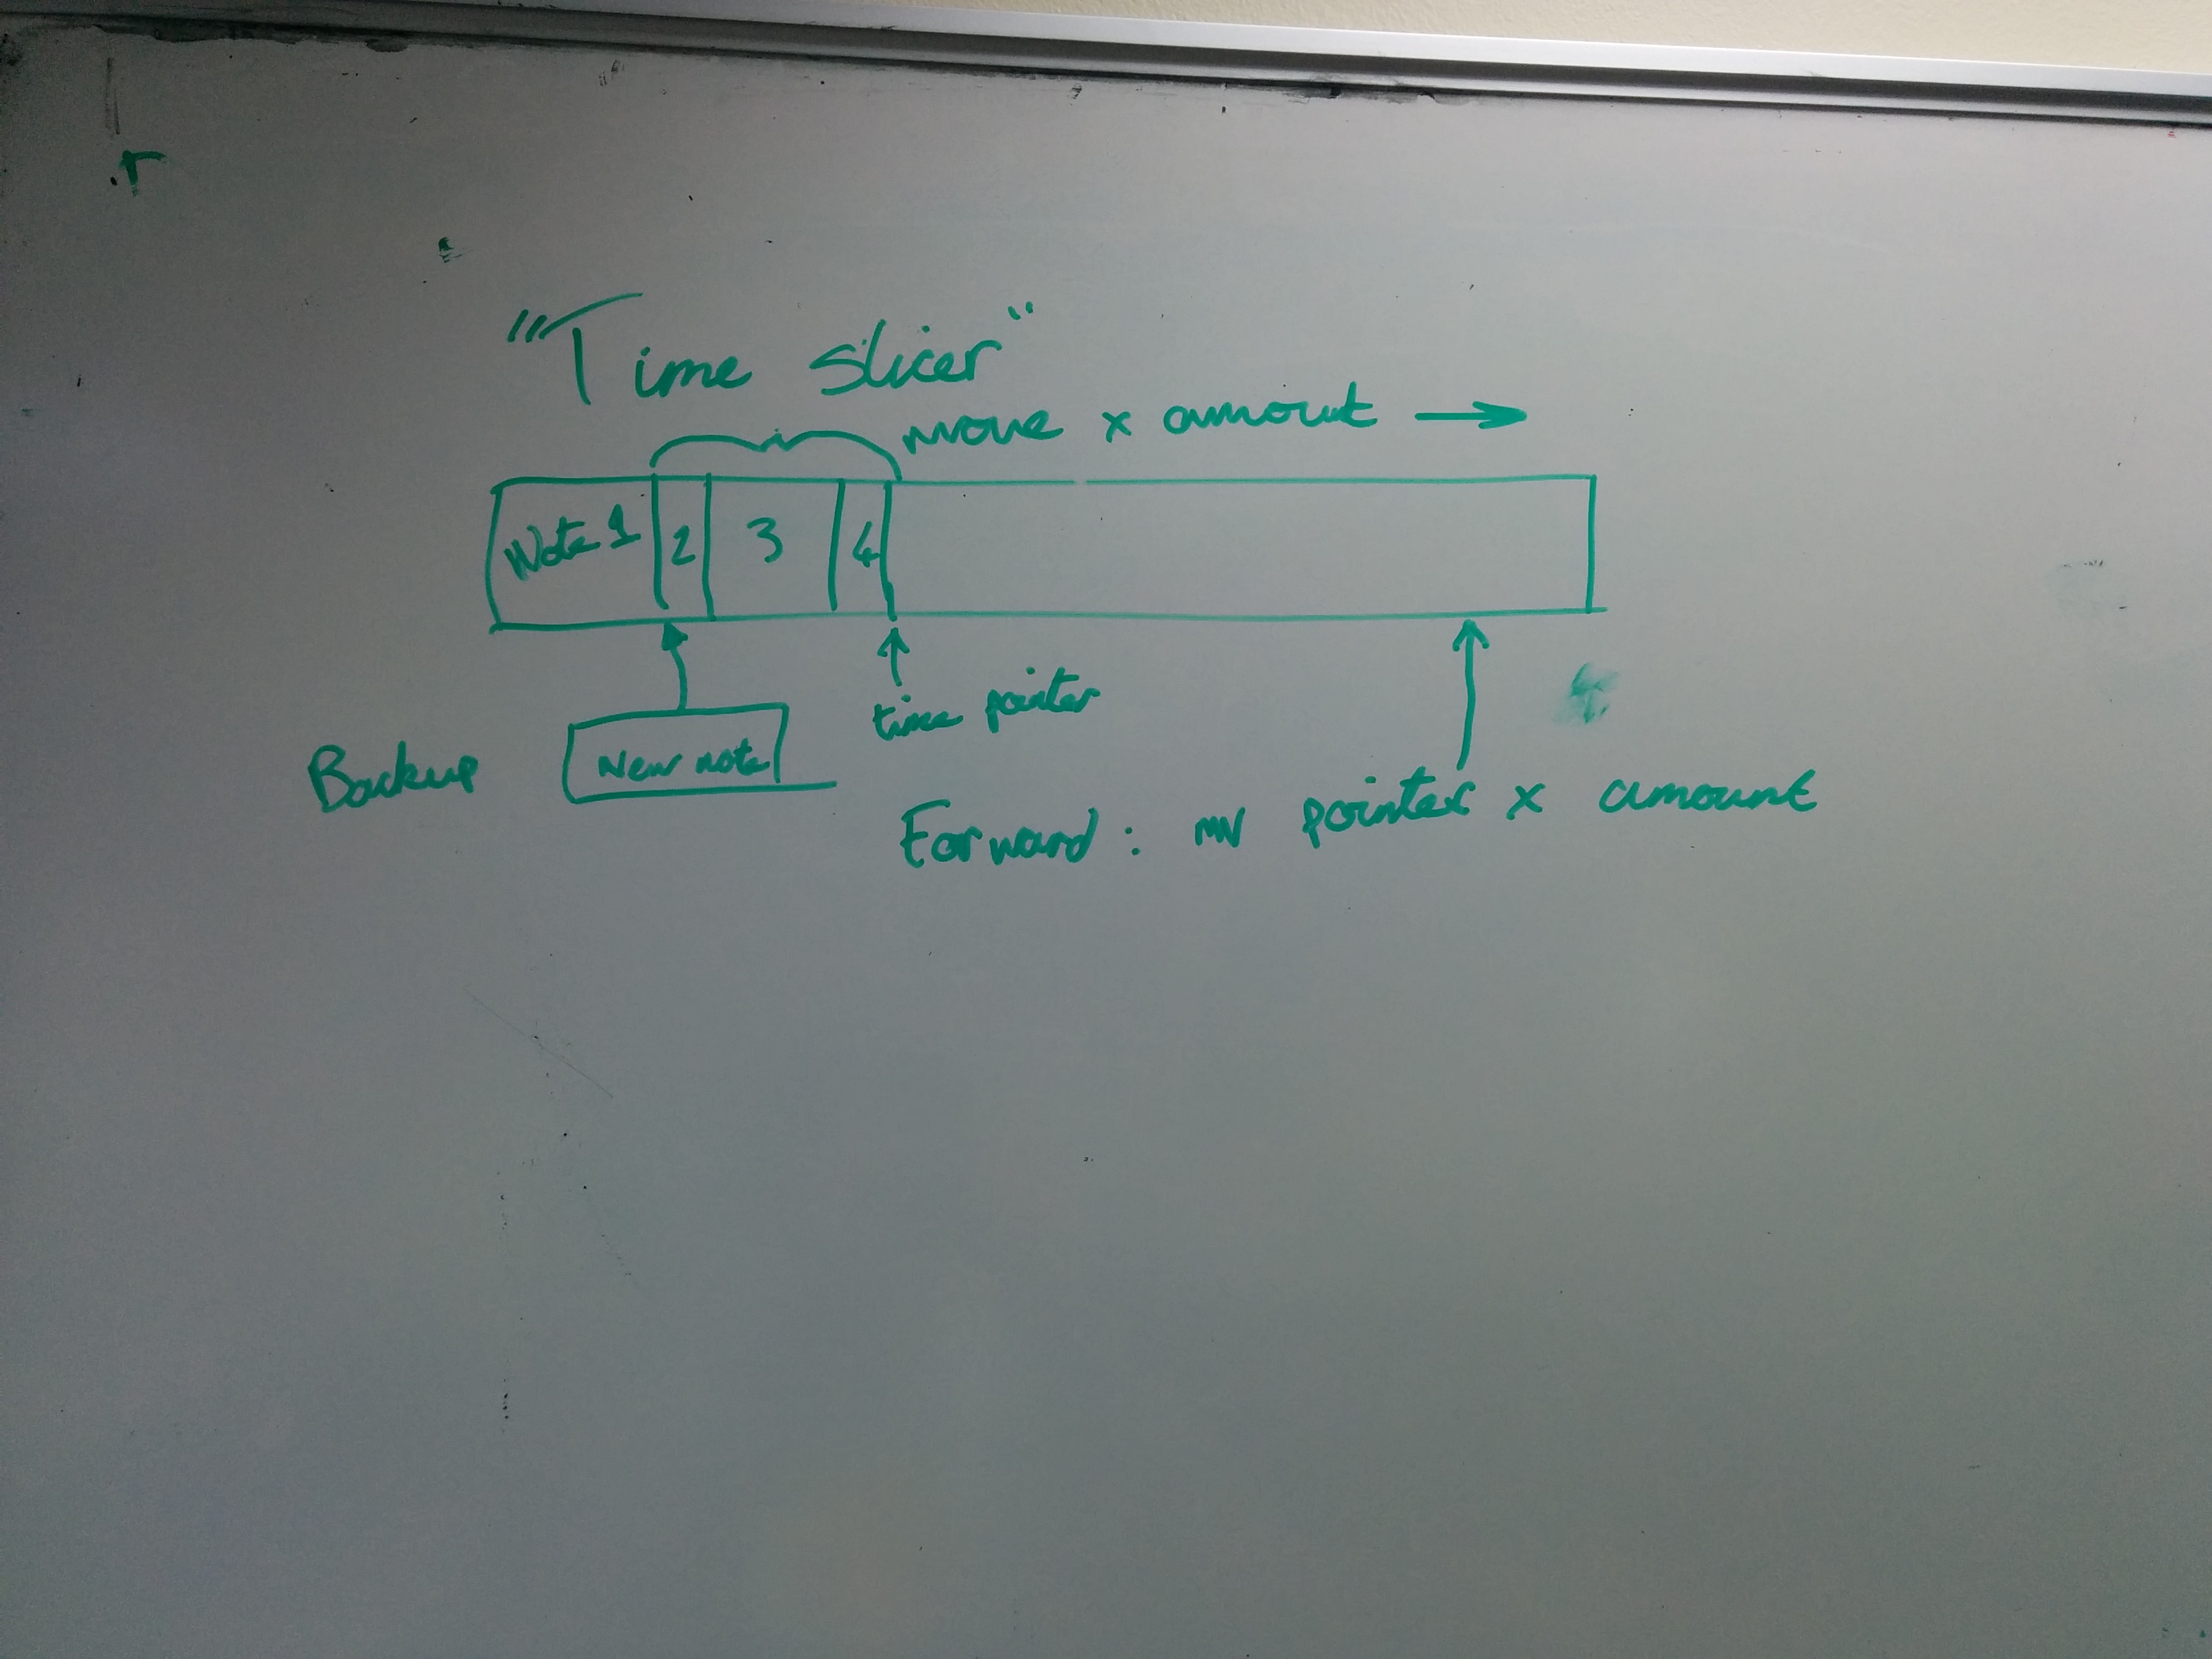 "Time slicer"
move x amout →
Note 1 2 3 4
time pointer
Backup New note
Forward: mv pointer x amount